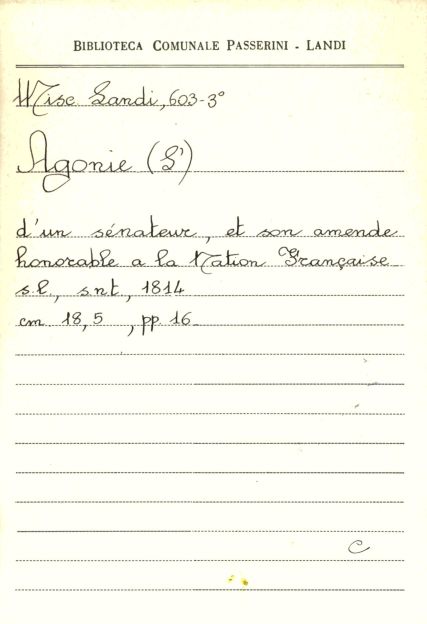 BIBLIOTECA COMUNALE PASSERINI - LANDI
Misc Landi, 603-3°
Agonie (L')
d'un sénateur, et son amende
honorable a la Nation Française
s.l., s.n.t, 1814
cm 18,5, pp. 16
C